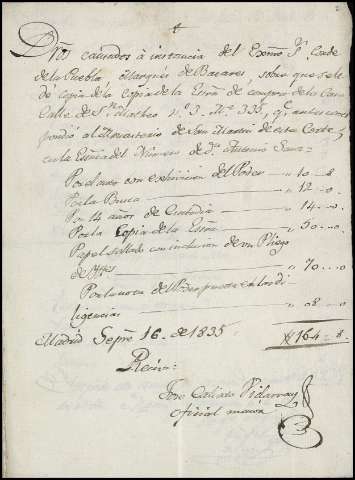 Dros causados à instancia del Exmo Sr. Conde
de la Puebla Marques de Bacares, sobre que se le
dé copia de la copia de la Essra de compra de la Casa
Calle de Sn Matheo n.º 3. Mª. 335, qe. antes corres
pondió al Monasterio de San Martin de esta Corte,
en la Essnia del Numero de Dn Antonio
Por el auto con exhivicion del Poder — 10 - 8
Por la Busca — 12 - 0
Por 14 años de Custodia — 14 - 0
Por la Copia de la Essra — 50 - 0
Papel sellado con inclusion de un Pliego
de — 70 - 0
Por la del Poder puesta en las di
ligencias — 08 - 0
Madrid Sepre 16. de 1835. 164 - 8
Recivi:
Jose Calisto
oficial mayor